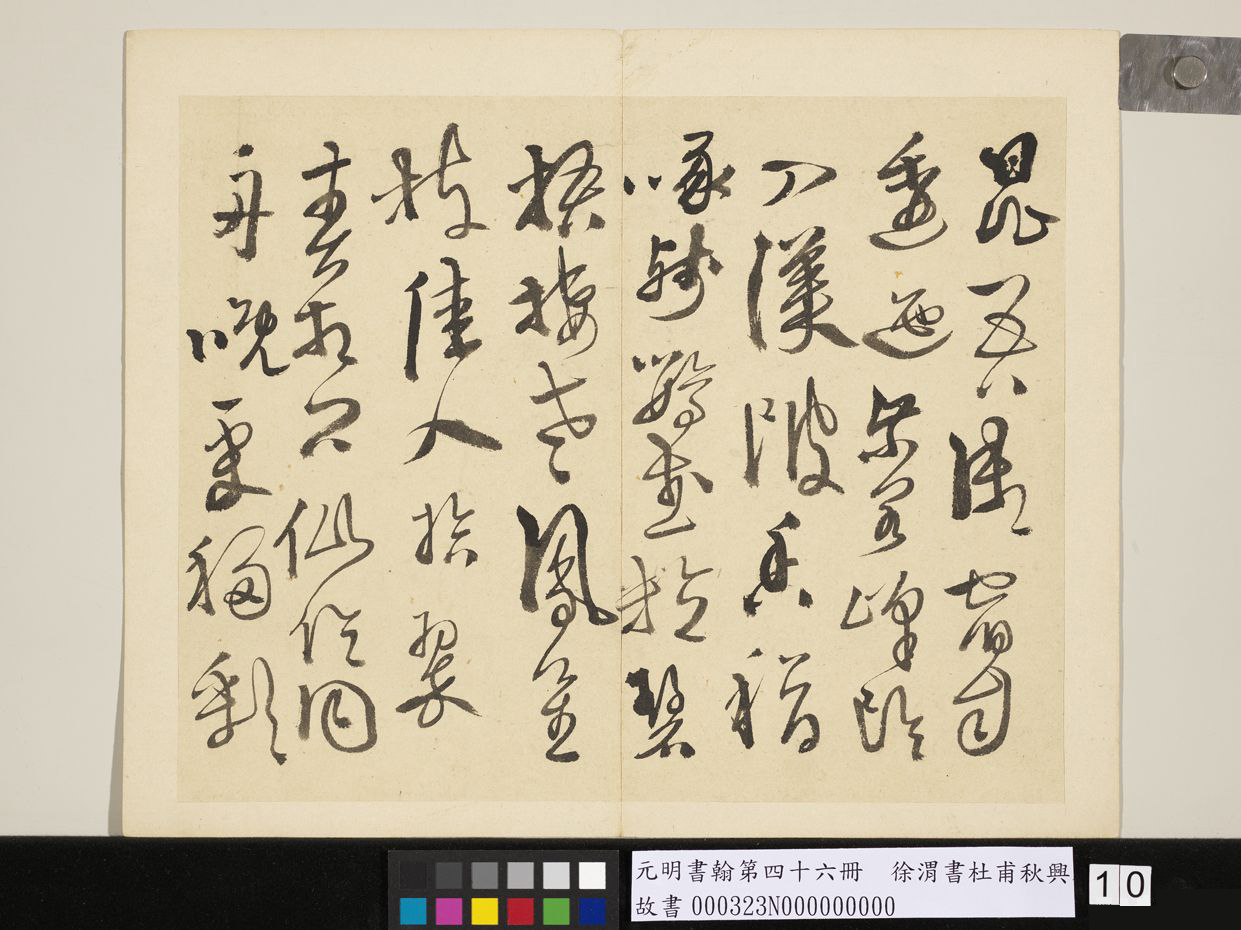 昆吾御宿自
逶迤紫閣峰陰
入渼陂香稻
啄殘鸚武粒碧
梧棲老鳳皇
枝佳人拾翠
春相問仙侶同
舟晚更移彩
元明書翰第四十六冊　徐渭書杜甫秋興
故書 000323N000000000
10